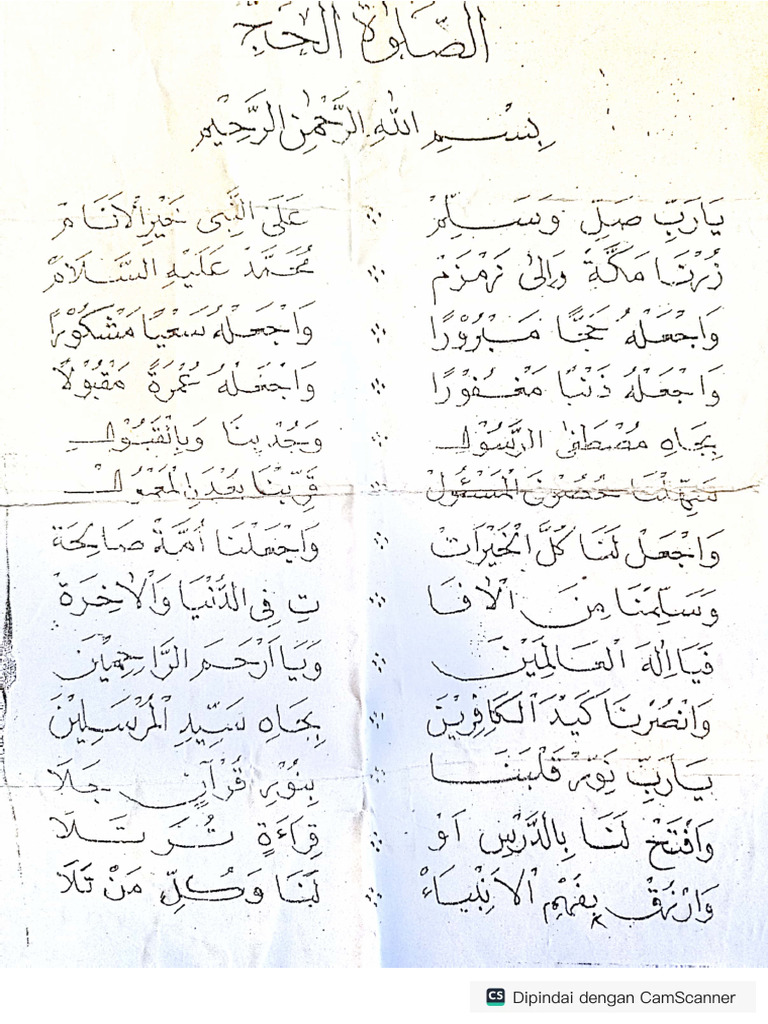 الصَّلَوٰةُ الْحَجِّ
بِسْمِ اللهِ الرَّحْمٰنِ الرَّحِيْمِ
يَارَبِّ صَلِّ وَسَلِّمْ ∴ عَلَى النَّبِى خَيْرِ الْاَنَامْ
زُرْنَا مَكَّةَ وَإِلىٰ زَمْزَمْ ∴ مُحَمَّدْ عَلَيْهِ السَّلَامْ
وَاجْعَلْهُ حَجًّا مَبْرُوْرًا ∴ وَاجْعَلْهُ سَعْيًا مَشْكُوْرًا
وَاجْعَلْهُ ذَنْبًا مَغْفُوْرًا ∴ وَاجْعَلْهُ عُمْرَةً مَقْبُوْلًا
بِجَاهِ مُصْطَفٰى الرَّسُوْلِ ∴ وَجُدْ بِنَا وَبِالْقَبُوْلِ
الْمَسْئُوْلْ ∴ قَرِّبْنَا بَعْدَ
وَاجْعَلْ لَنَا كُلَّ الْخَيْرَاتْ ∴ وَاجْعَلْنَا أُمَّةً صَالِحَة
وَسَلِّمْنَا مِنَ الْاٰفَا ∴ تِ فِى الدُّنْيَا وَالْاٰخِرَةْ
فَيَا اِلٰهَ الْعَالَمِيْنَ ∴ وَيَا اَرْحَمَ الرَّاحِمِيْنَ
وَانْصُرْنَا كَيْدَ الْكَافِرِيْنَ ∴ بِجَاهِ سَيِّدِ الْمُرْسَلِيْنَ
يَارَبِّ نَوِّرْ قَلْبَنَا ∴ بِنُوْرِ قُرْآنٍ جَلَا
وَافْتَحْ لَنَا بِالدَّرْسِ اَوْ ∴ قِرَاءَةٍ تُرَتَّلَا
وَارْزُقْ بِفَهْمِ الْاَنْبِيَاءْ ∴ لَنَا وَكُلِّ مَنْ تَلَا
Dipindai dengan CamScanner